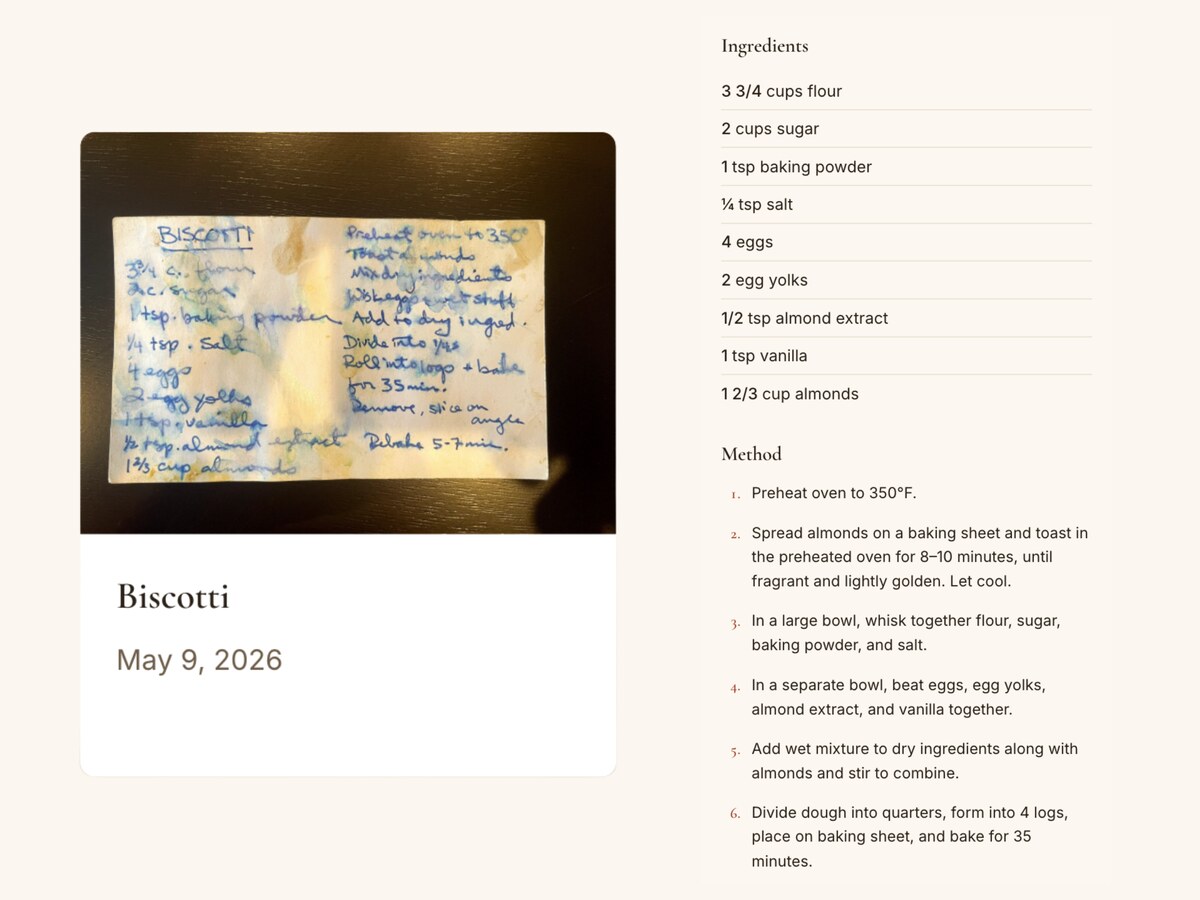 BISCOTTI
3 3/4 c. flour
2 c. sugar
1 tsp. baking powder
1/4 tsp. salt
4 eggs
2 egg yolks
1 tsp. vanilla
1/2 tsp. almond extract
1 2/3 cup almonds
Preheat oven to 350°
Toast almonds
Mix dry ingredients
Wisk eggs + wet stuff
Add to dry ingred.
Divide into 1/4s
Roll into logs + bake
for 35 min.
Remove, slice on
angle
Rebake 5-7 min.
Biscotti
May 9, 2026
Ingredients
3 3/4 cups flour
2 cups sugar
1 tsp baking powder
¼ tsp salt
4 eggs
2 egg yolks
1/2 tsp almond extract
1 tsp vanilla
1 2/3 cup almonds
Method
1. Preheat oven to 350°F.
2. Spread almonds on a baking sheet and toast in
the preheated oven for 8–10 minutes, until
fragrant and lightly golden. Let cool.
3. In a large bowl, whisk together flour, sugar,
baking powder, and salt.
4. In a separate bowl, beat eggs, egg yolks,
almond extract, and vanilla together.
5. Add wet mixture to dry ingredients along with
almonds and stir to combine.
6. Divide dough into quarters, form into 4 logs,
place on baking sheet, and bake for 35
minutes.